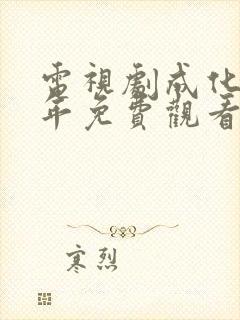 電視劇成化
年免費觀看
寒烈